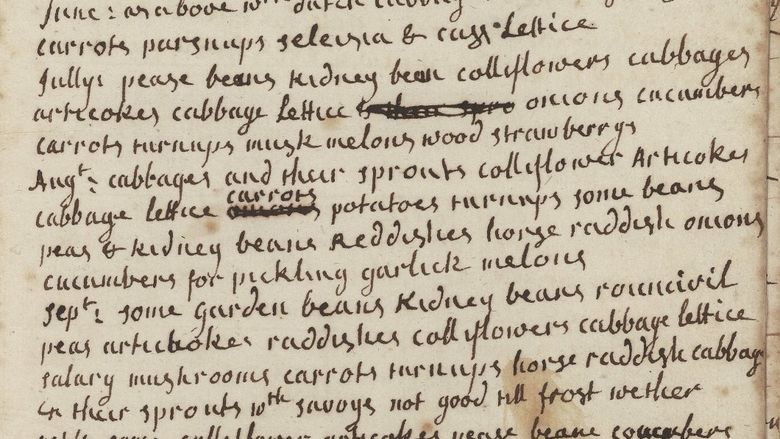 June: as above wth dutch cabbag
carrots parsnups selensia & cags Lettice
Jully: pease beans kidney been colliflowers cabbages
articokes cabbage Lettice onions cucumbers
carrots turnups musk melons wood strawberrys
Augt: cabbages and their sprouts colliflower Articokes
carrots
cabbage lettice potatoes turnups some beans
peas & kidney beans Reddishes horse raddish onions
cucumbers for pickling garlick melons
Sept: some garden beans kidney beans rouncivil
peas artichokes raddishes colliflowers cabbage lettice
salary mushrooms carrots turnups horse raddish cabbag
& their sprouts wth savoys not good till frost wether
some colliflower articokes pease beane cowcumbers